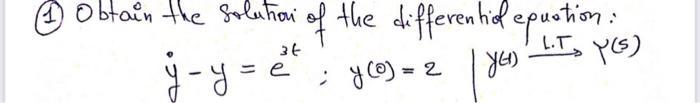 ① Obtain the solution of the differential equation:
ẏ - y = e^{3t} ; y(0) = 2 | y(t) \xrightarrow{L.T} Y(s)